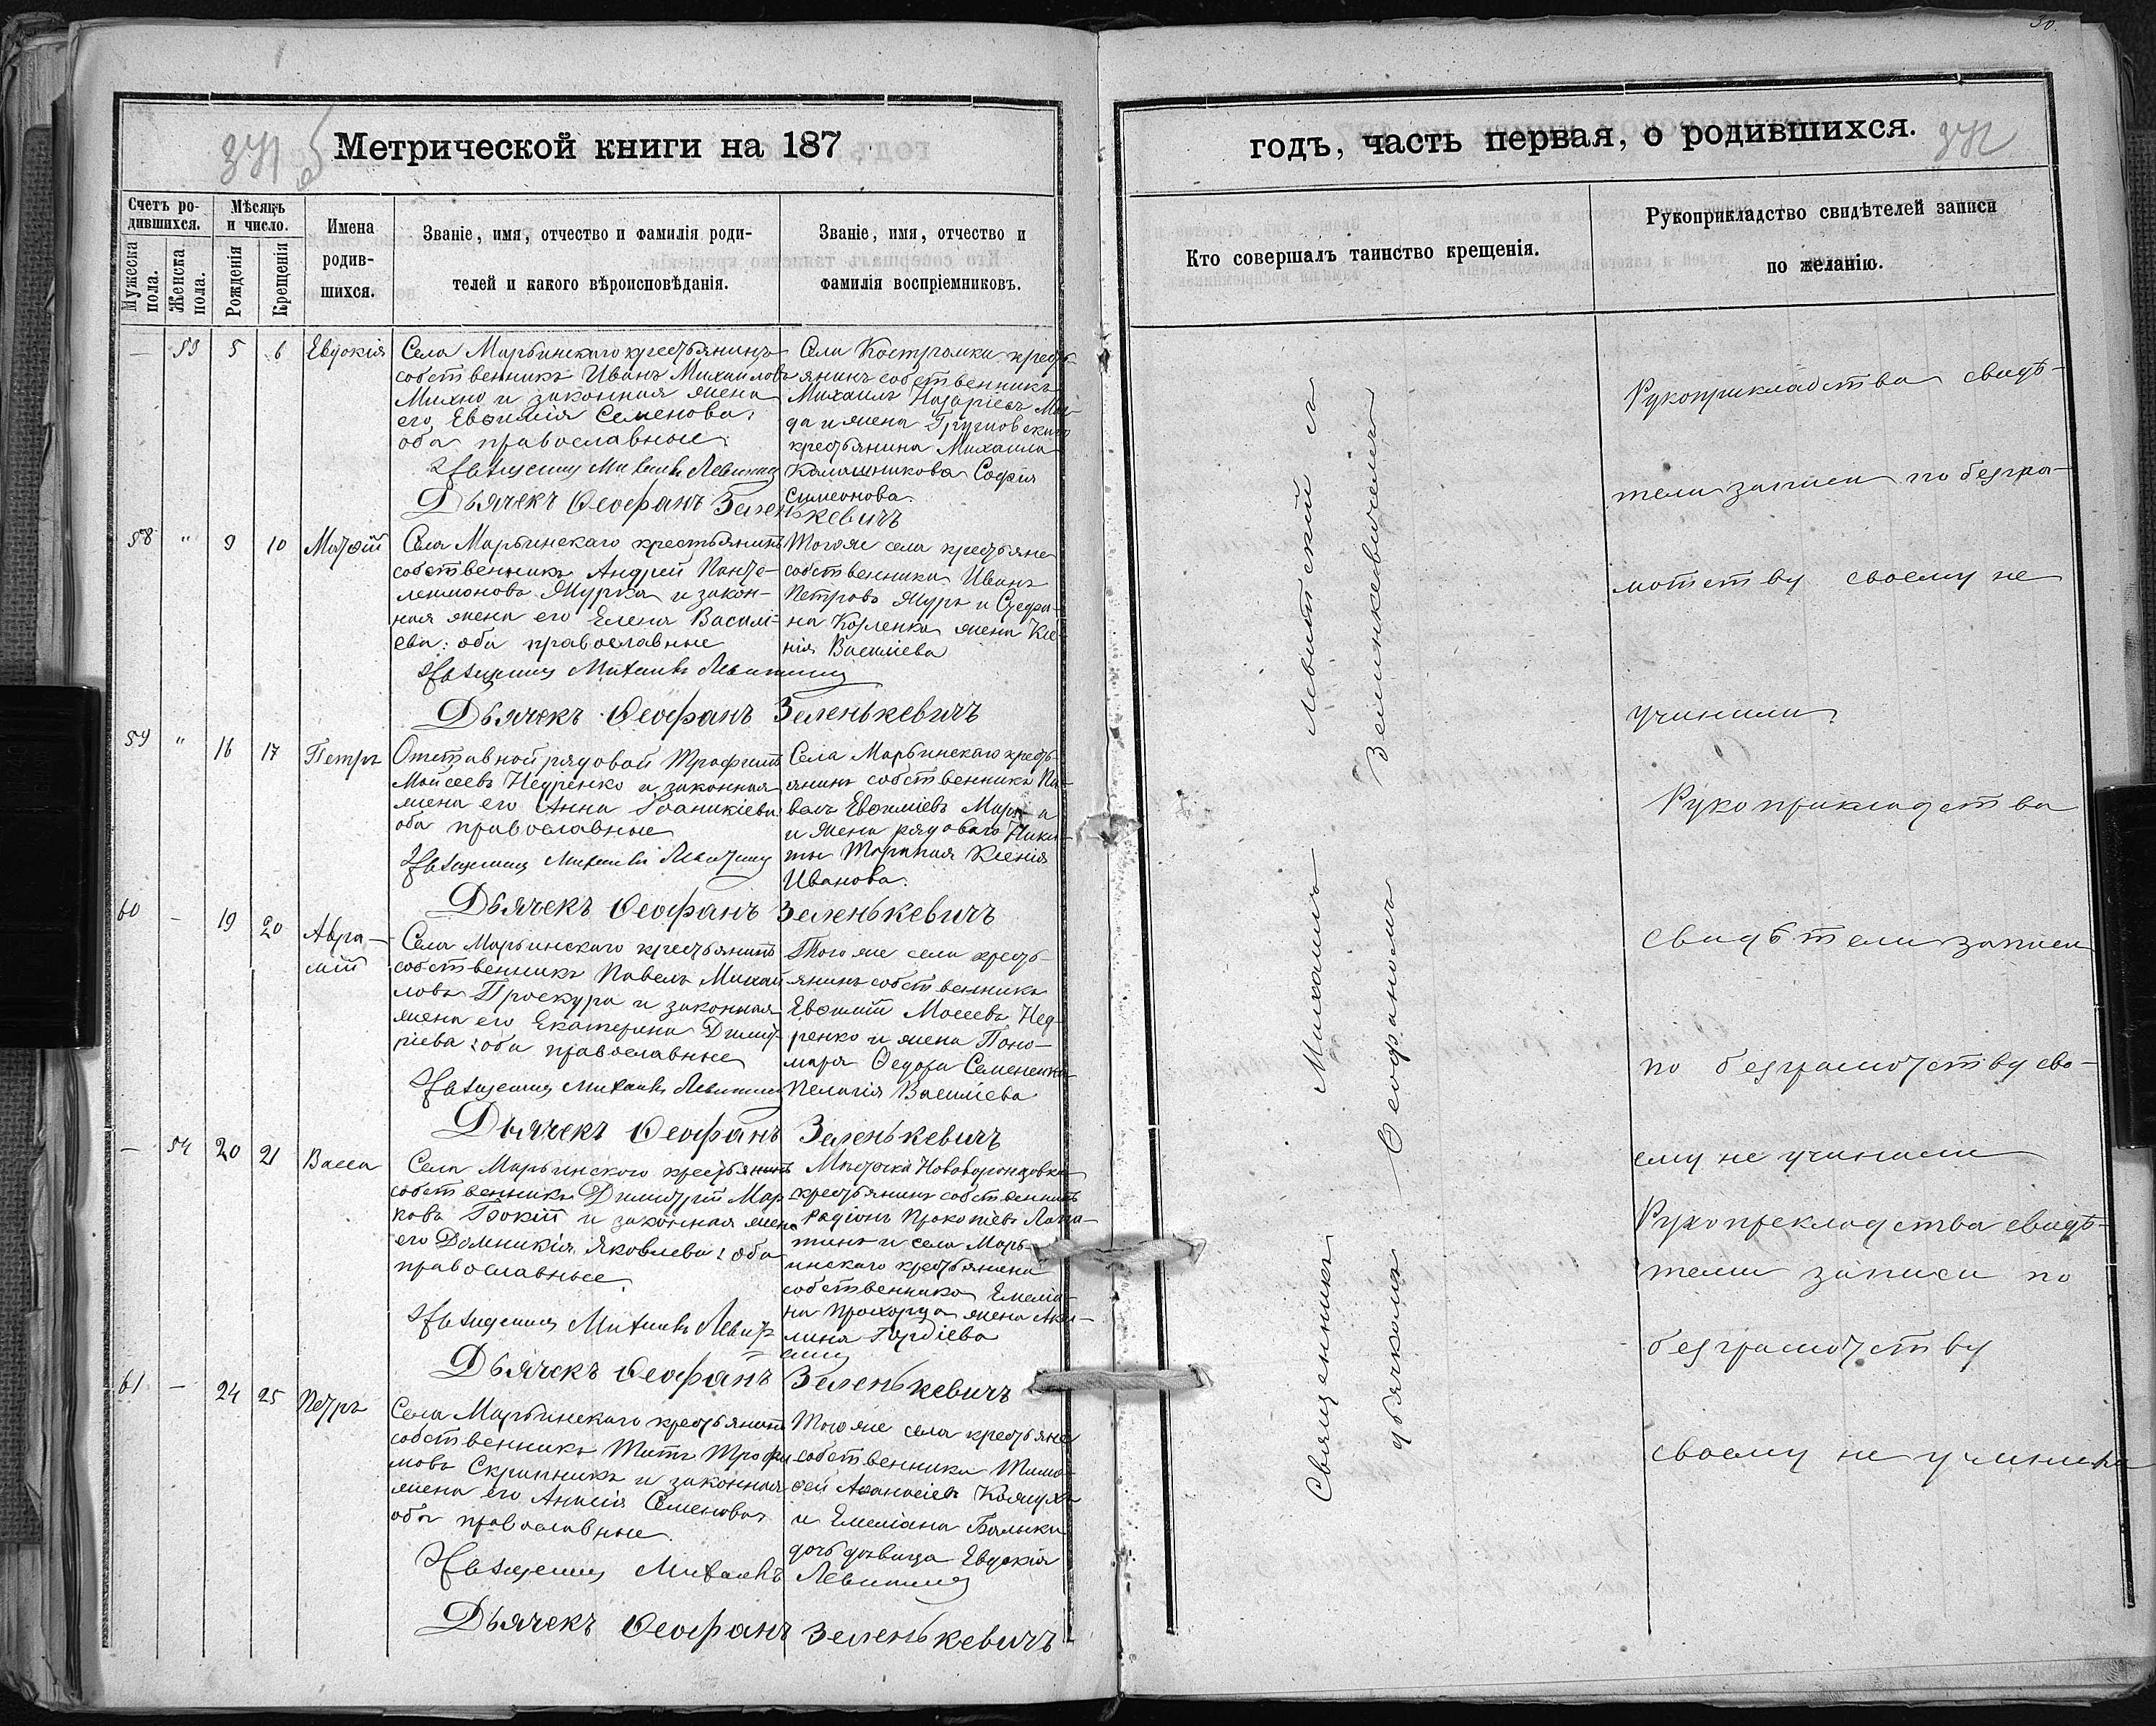 Метрической книги на 187
Счетъ ро-
дившихся.
Мужеска
пола.
Женска
пола.
Мѣсяцъ
и число.
Рожденія
Крещенія
Имена
родив-
шихся.
Званіе, имя, отчество и фамилія роди-
телей и какого вѣроисповѣданія.
Званіе, имя, отчество и
фамилія воспріемниковъ.
— 53 5 6 Евдокія
Села Марьинскаго крестьянинъ
собственникъ Иванъ Михаиловъ
Михно и законная жена
его Евфимія Семенова;
оба православные.
Священникъ Михаилъ Левитскій
Дьячекъ Ѳеофанъ Зеленькевичъ
Села Костромки кресть-
янинъ собственникъ
Михаилъ Назаріевъ
да жена Грушовскаго
крестьянина Михаила
Калашникова Софія
Симеонова.
58 " 9 10 Матѳій
Села Марьинскаго крестьянинъ
собственникъ Андрей Панте-
леимоновъ Журка и закон-
ная жена его Елена Василі-
ева: оба православные
Священникъ Михаилъ Левитскій
Дьячекъ Ѳеофанъ Зеленькевичъ
Того же села крестьяне
собственники Иванъ
Петровъ Журъ и Стефа-
на Козленка жена Ксе-
нія Василіева
59 " 16 17 Петръ
Отставной рядовой Трофимъ
Мойсеевъ Недренко и законная
жена его Анна Іоаникіева:
оба православные
Священникъ Михаилъ Левитскій
Дьячекъ Ѳеофанъ Зеленькевичъ
Села Марьинскаго кресть-
янинъ собственникъ Па-
велъ Евфиміевъ
и жена рядоваго Ники-
ты Ксенія
Иванова.
60 — 19 20 Авра-
мій
Села Марьинскаго крестьянинъ
собственникъ Павелъ Михай-
ловъ Проскура и законная
жена его Екатерина Димит-
ріева: оба православные
Священникъ Михаилъ Левитскій
Дьячекъ Ѳеофанъ Зеленькевичъ
Того же села кресть-
янинъ собственникъ
Евфимій Мосеевъ Нед-
ренко и жена Поно-
маря Ѳедора Семененка
Пелагія Василіева
— 54 20 21 Васса
Села Марьинского крестьянинъ
собственникъ Димитрій Мар-
ковъ Бокій и законная жена
его Домникія Яковлева: оба
православные.
Священникъ Михаилъ Левит-
скій
Дьячекъ Ѳеофанъ Зеленькевичъ
Мѣстечка Нововоронцовки
крестьянинъ собственникъ
Радіонъ Прокопіевъ Лопа-
тинъ и села Марь-
инскаго крестьянина
собственника Емелія-
на Прохорца жена Аку-
лина Гордіева
61 — 24 25 Петръ
Села Марьинскаго крестьянинъ
собственникъ Титъ Трофи-
мовъ Скрипникъ и законная
жена его Анисія Семенова:
оба православные.
Священникъ Михаилъ Левитскій
Дьячекъ Ѳеофанъ Зеленькевичъ
Того же села крестьяне
собственники Тимо-
ѳей Аѳанасіевъ Кожухъ
и Емеліана Балыки
дочь дѣвица Евдокія
30.
годъ, часть первая, о родившихся.
Кто совершалъ таинство крещенія.
Рукоприкладство свидѣтелей записи
по желанію.
Священникъ Михаилъ Левитскій съ
дьячкомъ Ѳеофаномъ Зелинкевичемъ
Рукоприкладства свидѣ-
тели записи по безгра-
мотству своему не
учинили
Рукоприкладства
свидѣтели записи
по безграмотству сво-
ему не учинили
Рукопрекладства свидѣ-
тели записи по
безграмотству
своему не учинили